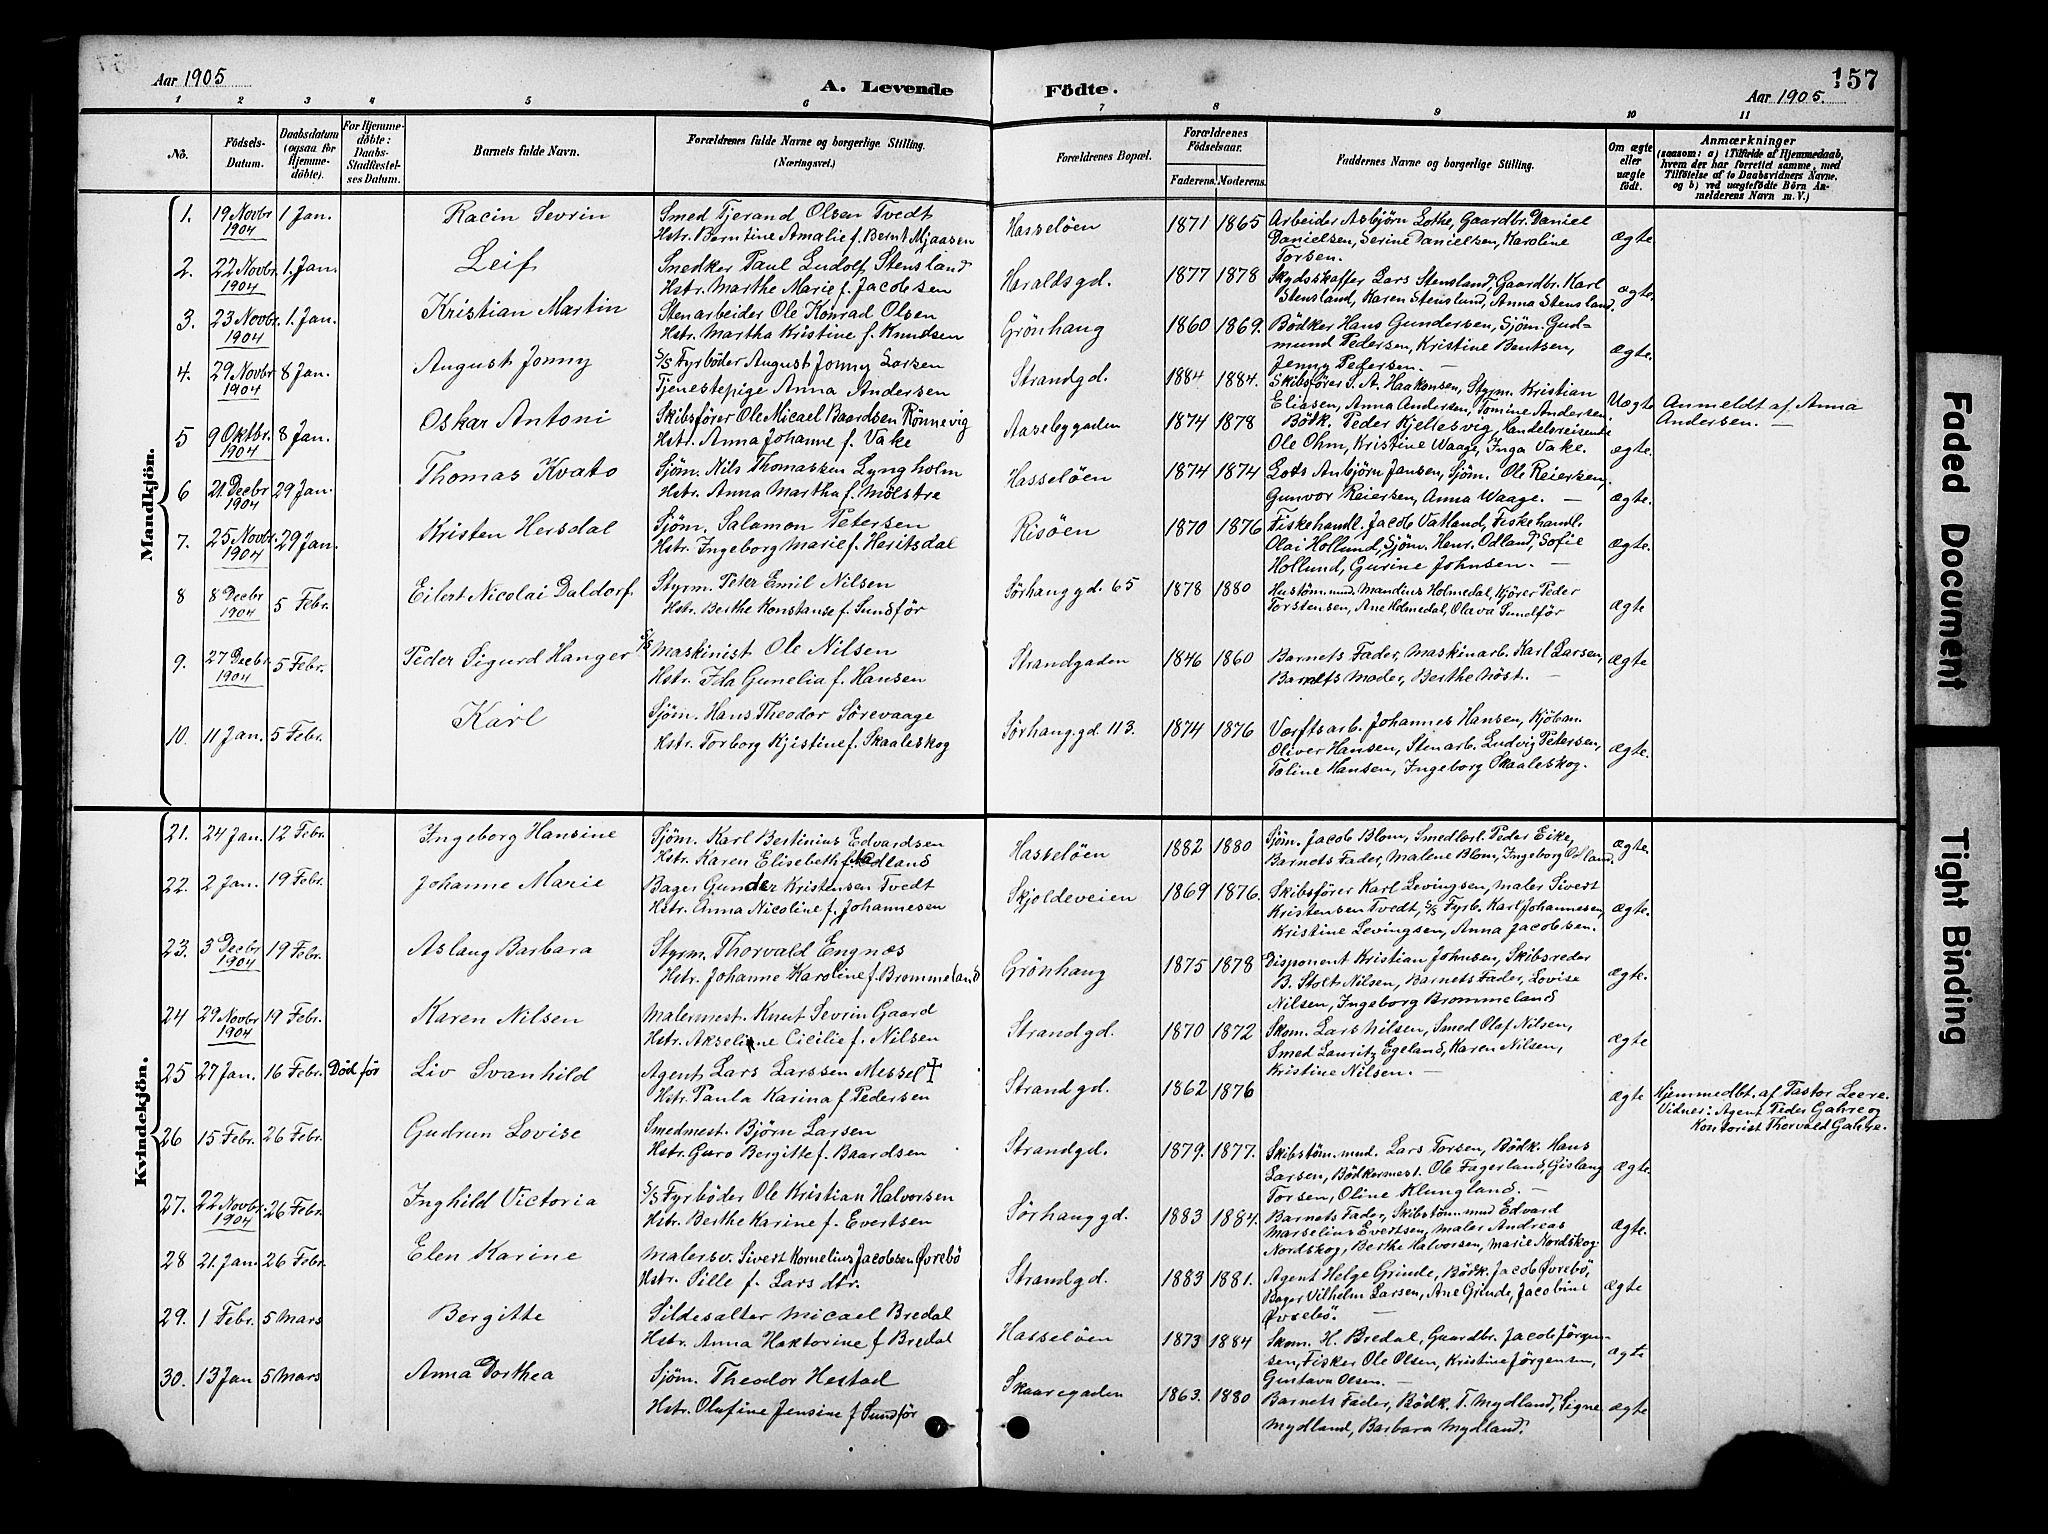 Aar 1905
A. Levende
Födte.
157
Aar 1905.
1 2 3 4 5 6 7 8 9 10 11
No.
Födsels-Datum.
Daabsdatum (ogsaa for Hjemmedöbte).
For Hjemmedöbte: Daabs-Stadfæstelses Datum.
Barnets fulde Navn.
Forældrenes fulde Navne og borgerlige Stilling. (Næringsvei.)
Forældrenes Bopæl.
Forældrenes Födselsaar.
Faderens. Moderens.
Faddernes Navne og borgerlige Stilling.
Om ægte eller uægte födt.
Anmærkninger
(saasom: a) i Tilfælde af Hjemmedaab,
hvem der har forrettet samme, med
Tilföielse af to Daabsvidners Navne,
og b) ved uægtefödte Börn Anmelderens Navn m. V.)
Mandkjön.
1. 19 Novbr 1904 1 Jan. Racin Sevrin Smed Tjerand Olsen Tvedt Hasseløen 1871 1865 Arbeider Asbjørn Lothe, Gaardbr. Daniel
Hstr. Berntine Amalie f. Bernt Mjaasen Danielsen, Serine Danielsen, Karoline ægte
Torsen.
2. 22 Novbr. 1904 1. Jan. Leif Snedker Paul Ludolf Stensland Haraldsgd. 1877 1878 Skydsskaffer Lars Stensland, Gaardbr. Karl
Hstr. Marthe Marie f. Jacobsen Stensland, Karen Stensland, Anna Stensland. ægte.
3. 23 Novbr. 1904 1. Jan. Kristian Martin Stenarbeider Ole Konrad Olsen Grönhang 1860 1869. Bödker Hans Gundersen, Sjöm. Gud=
Hstr. Martha Kristine f. Knudsen mund Pedersen, Kristine Bentsen, ægte.
Jenny Petersen. —
4. 29 Novbr 1904 8 Jan. August Jonny S/S Fyrböder August Jonny Larsen Strandgd. 1884 1884. Skibsfører S. A. Haakonsen, Styrm. Kristian
Tjenestepige Anna Andersen Eliasen, Anna Andersen, Tomine Andersen. Uægte Anmeldt af Anna
Andersen. —
5 9 Oktbr. 1904 8 Jan. Oskar Antoni Skibsfører Ole Micael Baardsen Rönnevig Aasebygaden 1874 1878 Bödk. Peder Kjellesvig, Handelsreisende
Hstr. Anna Johanne f. Vake Ole Ohm, Kristine Waage, Inga Vake. ægte.
6 21. Decbr 1904 29 Jan. Thomas Kvato Sjöm. Nils Thomassen Lyngholm Hasseløen 1874 1874 Lods Anbjörn Jansen, Sjöm. Ole Reiersen,
Hstr. Anna Martha f. Mölstre Gunvor Reiersen, Anna Waage. — ægte.
7. 25 Novbr. 1904 29 Jan. Kristen Hersdal Sjöm. Salamon Petersen Risöen 1870 1876 Fiskehandl. Jacob Vatland, Fiskehandl.
Hstr. Ingeborg Marie f. Heritsdal Olai Hollund, Sjöm. Henr. Odland, Sofie ægte.
Hollund, Gurine Johnsen. —
8 8 Decbr 1904 5 Febr. Eilert Nicolai Daldorf Styrm. Peter Emil Nilsen Sørhanggd. 65 1878 1880 Hustöm.md. Mandius Holmedal, Kjörer Peder
Hstr. Berthe Konstanse f. Sundför Torstensen, Ane Holmedal, Olava Sundför ægte
9. 27 Decbr. 1904 5 Febr. Peder Sigurd Hanger S/S Maskinist Ole Nilsen Strandgaden 1846 1860 Barnets Fader, Maskinarb. Karl Larsen,
Hstr. Ida Gunelia f. Hansen Barnets Moder, Berthe Nöst. — ægte
10. 11 Jan. 5 Febr. Karl Sjöm. Hans Theodor Sörevaage Sørhanggd. 113. 1874 1876 Værftsarb. Johannes Hansen, Kjöbm.
Hstr. Torborg Kjistine f. Skaaleskog Oliver Hansen, Stenarb. Ludvig Petersen, ægte.
Toline Hansen, Ingeborg Skaaleskog.
Kvindekjön.
21. 24 Jan. 12 Febr. Ingeborg Hansine Sjöm. Karl Bertinius Edvardsen Hasselöen 1882 1880 Sjöm. Jacob Blom, Smedlærl. Peder Eike,
Hstr. Karen Elisebeth f. Odland Barnets Fader, Malene Blom, Ingeborg Odland ægte.
22. 2 Jan. 19 Febr. Johanne Marie Bager Gunder Kristensen Tvedt Skjoldeveien 1869 1876. Skibsförer Karl Levingsen, Maler Sivert
Hstr. Anna Nicoline f. Johannesen Kristensen Tvedt, S/S Fyrb. Karl Johannesen, ægte.
Kristine Levingsen, Anna Jacobsen.
23. 3 Decbr 1904 19 Febr. Aslaug Barbara Styrm. Thorvald Engnæs Grönhang 1875 1878 Disponent Kristian Johnsen, Skibsreder
Hstr. Johanne Karoline f. Brommeland B. Stolt Nilsen, Barnets Fader, Lovise ægte.
Nilsen, Ingeborg Brommeland
24 29 Novbr 1904 19 Febr. Karen Nilsen Malermest. Knut Sevrin Gaard Strandgd. 1870 1872 Skom. Lars Nilsen, Smed Olaf Nilsen,
Hstr. Akseline Cicilie f. Nilsen Smed Lauritz Egeland, Karen Nilsen, ægte
Kristine Nilsen. —
25 27 Jan. 16 Febr. Död för Liv Svanhild Agent Lars Larssen Messel † Strandgd. 1862 1876 ægte Hjemmedbt. af Pastor Leere.
Hstr. Paula Karina f. Pedersen Vidner: Agent Peder Gahre og
Kontorist Thorvald Gahre.
26 15 Febr. 26 Febr. Gudrun Lovise Smedmest. Björn Larsen Strandgd. 1879. 1877. Skibstöm.md. Lars Torsen, Bödk. Hans
Hstr. Guro Bergitte f. Baardsen Larsen, Bödkermest. Ole Fagerland, Gislaug ægte.
Torsen, Oline Klungland. —
27. 22 Novbr. 1904 26 Febr. Inghild Victoria S/S Fyrböder Ole Kristian Halvorsen Sørhanggd. 1883 1884. Barnets Fader, Skibstöm.md Edvard
Hstr. Berthe Karine f. Evertsen Marselius Evertsen, Maler Andreas ægte.
Nordskog, Berthe Halvorsen, Marie Nordskog.
28 21. Jan. 26 Febr. Elen Karine Malersv. Sivert Kornelius Jacobsen Øvrebö Strandgd. 1883 1881. Agent Helge Grinde, Bödk. Jacob Øvrebö,
Hstr. Sille f. Larsdtr. Bager Vilhelm Larsen, Ane Grinde, Jacobine ægte
Øvrebö. —
29. 1 Febr. 5 Mars Bergitte Sildesalter Micael Bredal Hasselöen 1873 1884 Skom. H. Bredal, Gaardbr. Jacob Jörgen-
Hstr. Anna Haktorine f Bredal sen, Fisker Ole Olsen, Kristine Jörgensen, ægte
Gustava Olsen. —
30. 13 Jan 5 Mars Anna Dorthea Sjöm. Theodor Hestad Skaaregaden 1863. 1880 Barnets Fader, Bödk. T. Mydland, Signe
Hstr. Olufine Jensine f Sundför Mydland, Barbara Mydland. ægte
Faded Document
Tight Binding